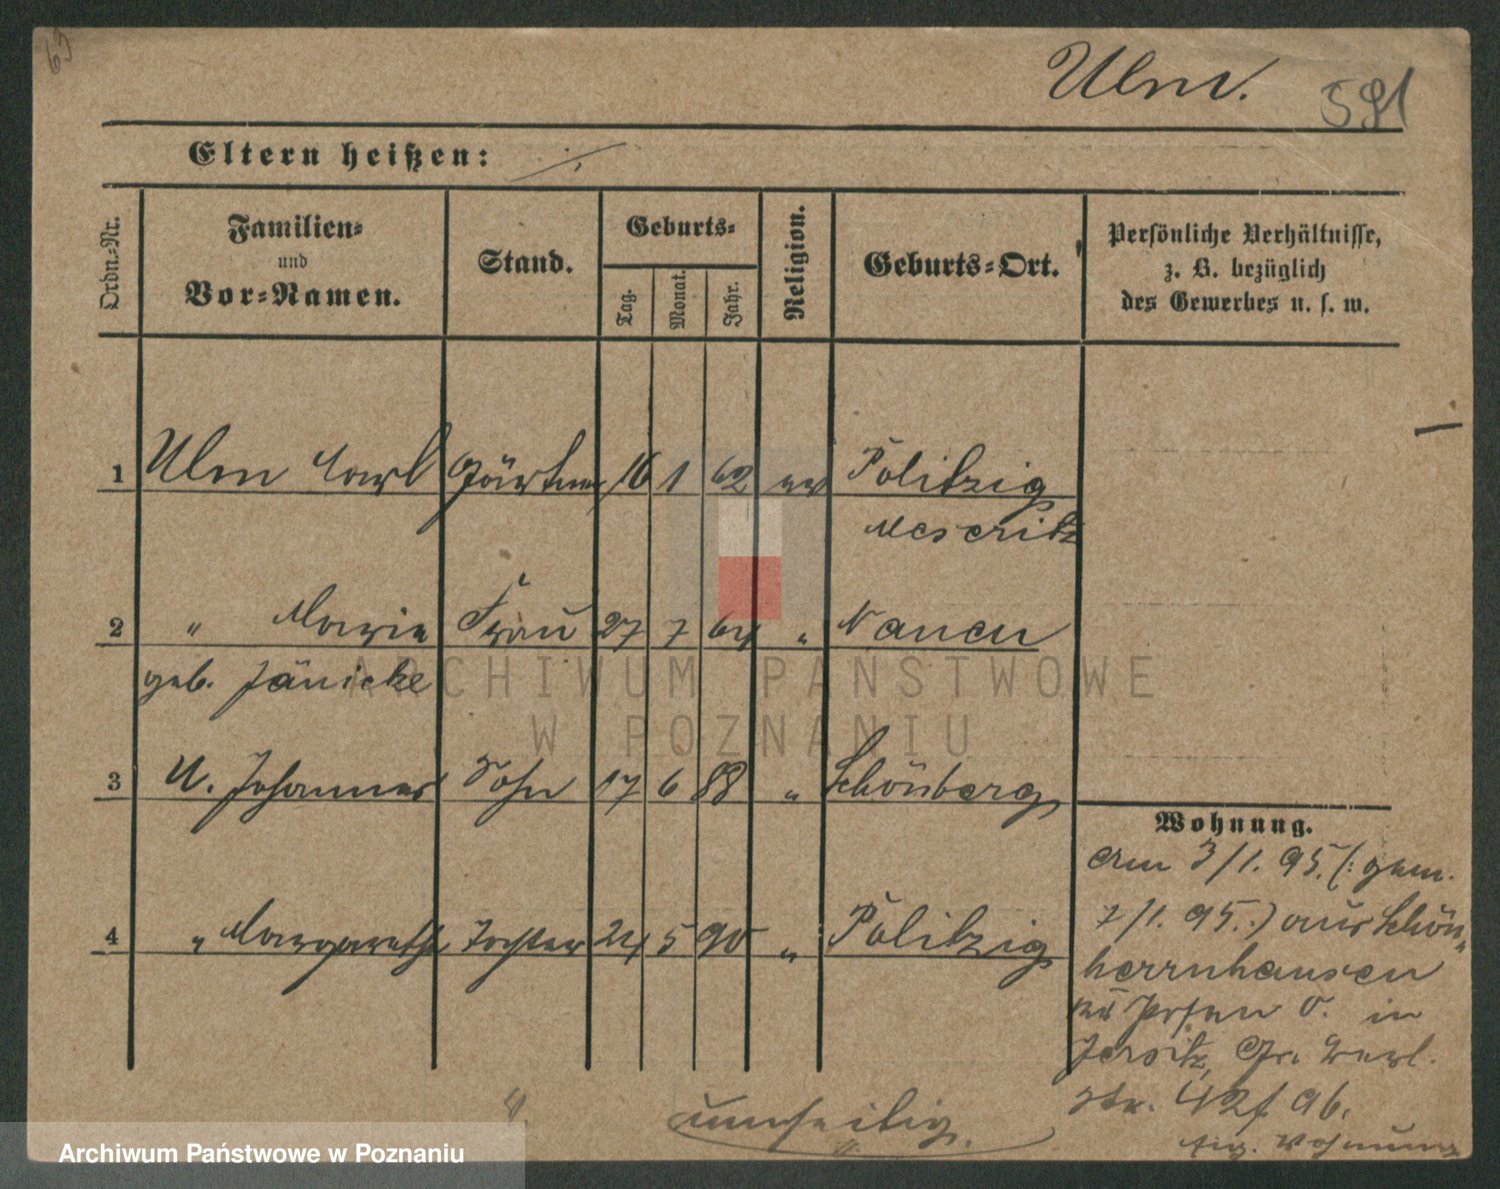 63
Ulm.
591
Eltern heißen: ./.
Ordn.-Nr.
Familien-
und
Vor-Namen.
Stand.
Geburts-
Tag.
Monat.
Jahr.
Religion.
Geburts-Ort.
Persönliche Verhältnisse,
z. B. bezüglich
des Gewerbes u. s. w.
1 Ulm Carl Gärtner 16 1 62 ev Politzig
Meseritz
2 " Marie Frau 27 7 64 " Nauen
geb. Jänicke
3 U. Johannes Sohn 17 6 88 " Schönberg
4 " Margarethe Tochter 24 5 90 " Politzig
Wohnung.
am 3/1. 95. (: gem.
7/1. 95. :) aus Schön-
herrnhausen
Kr Posen O. in
Jersitz, Gr. Berl.
Str. 42
96.
Wohnung
umseitig.
ARCHIWUM PAŃSTWOWE
W POZNANIU
Archiwum Państwowe w Poznaniu